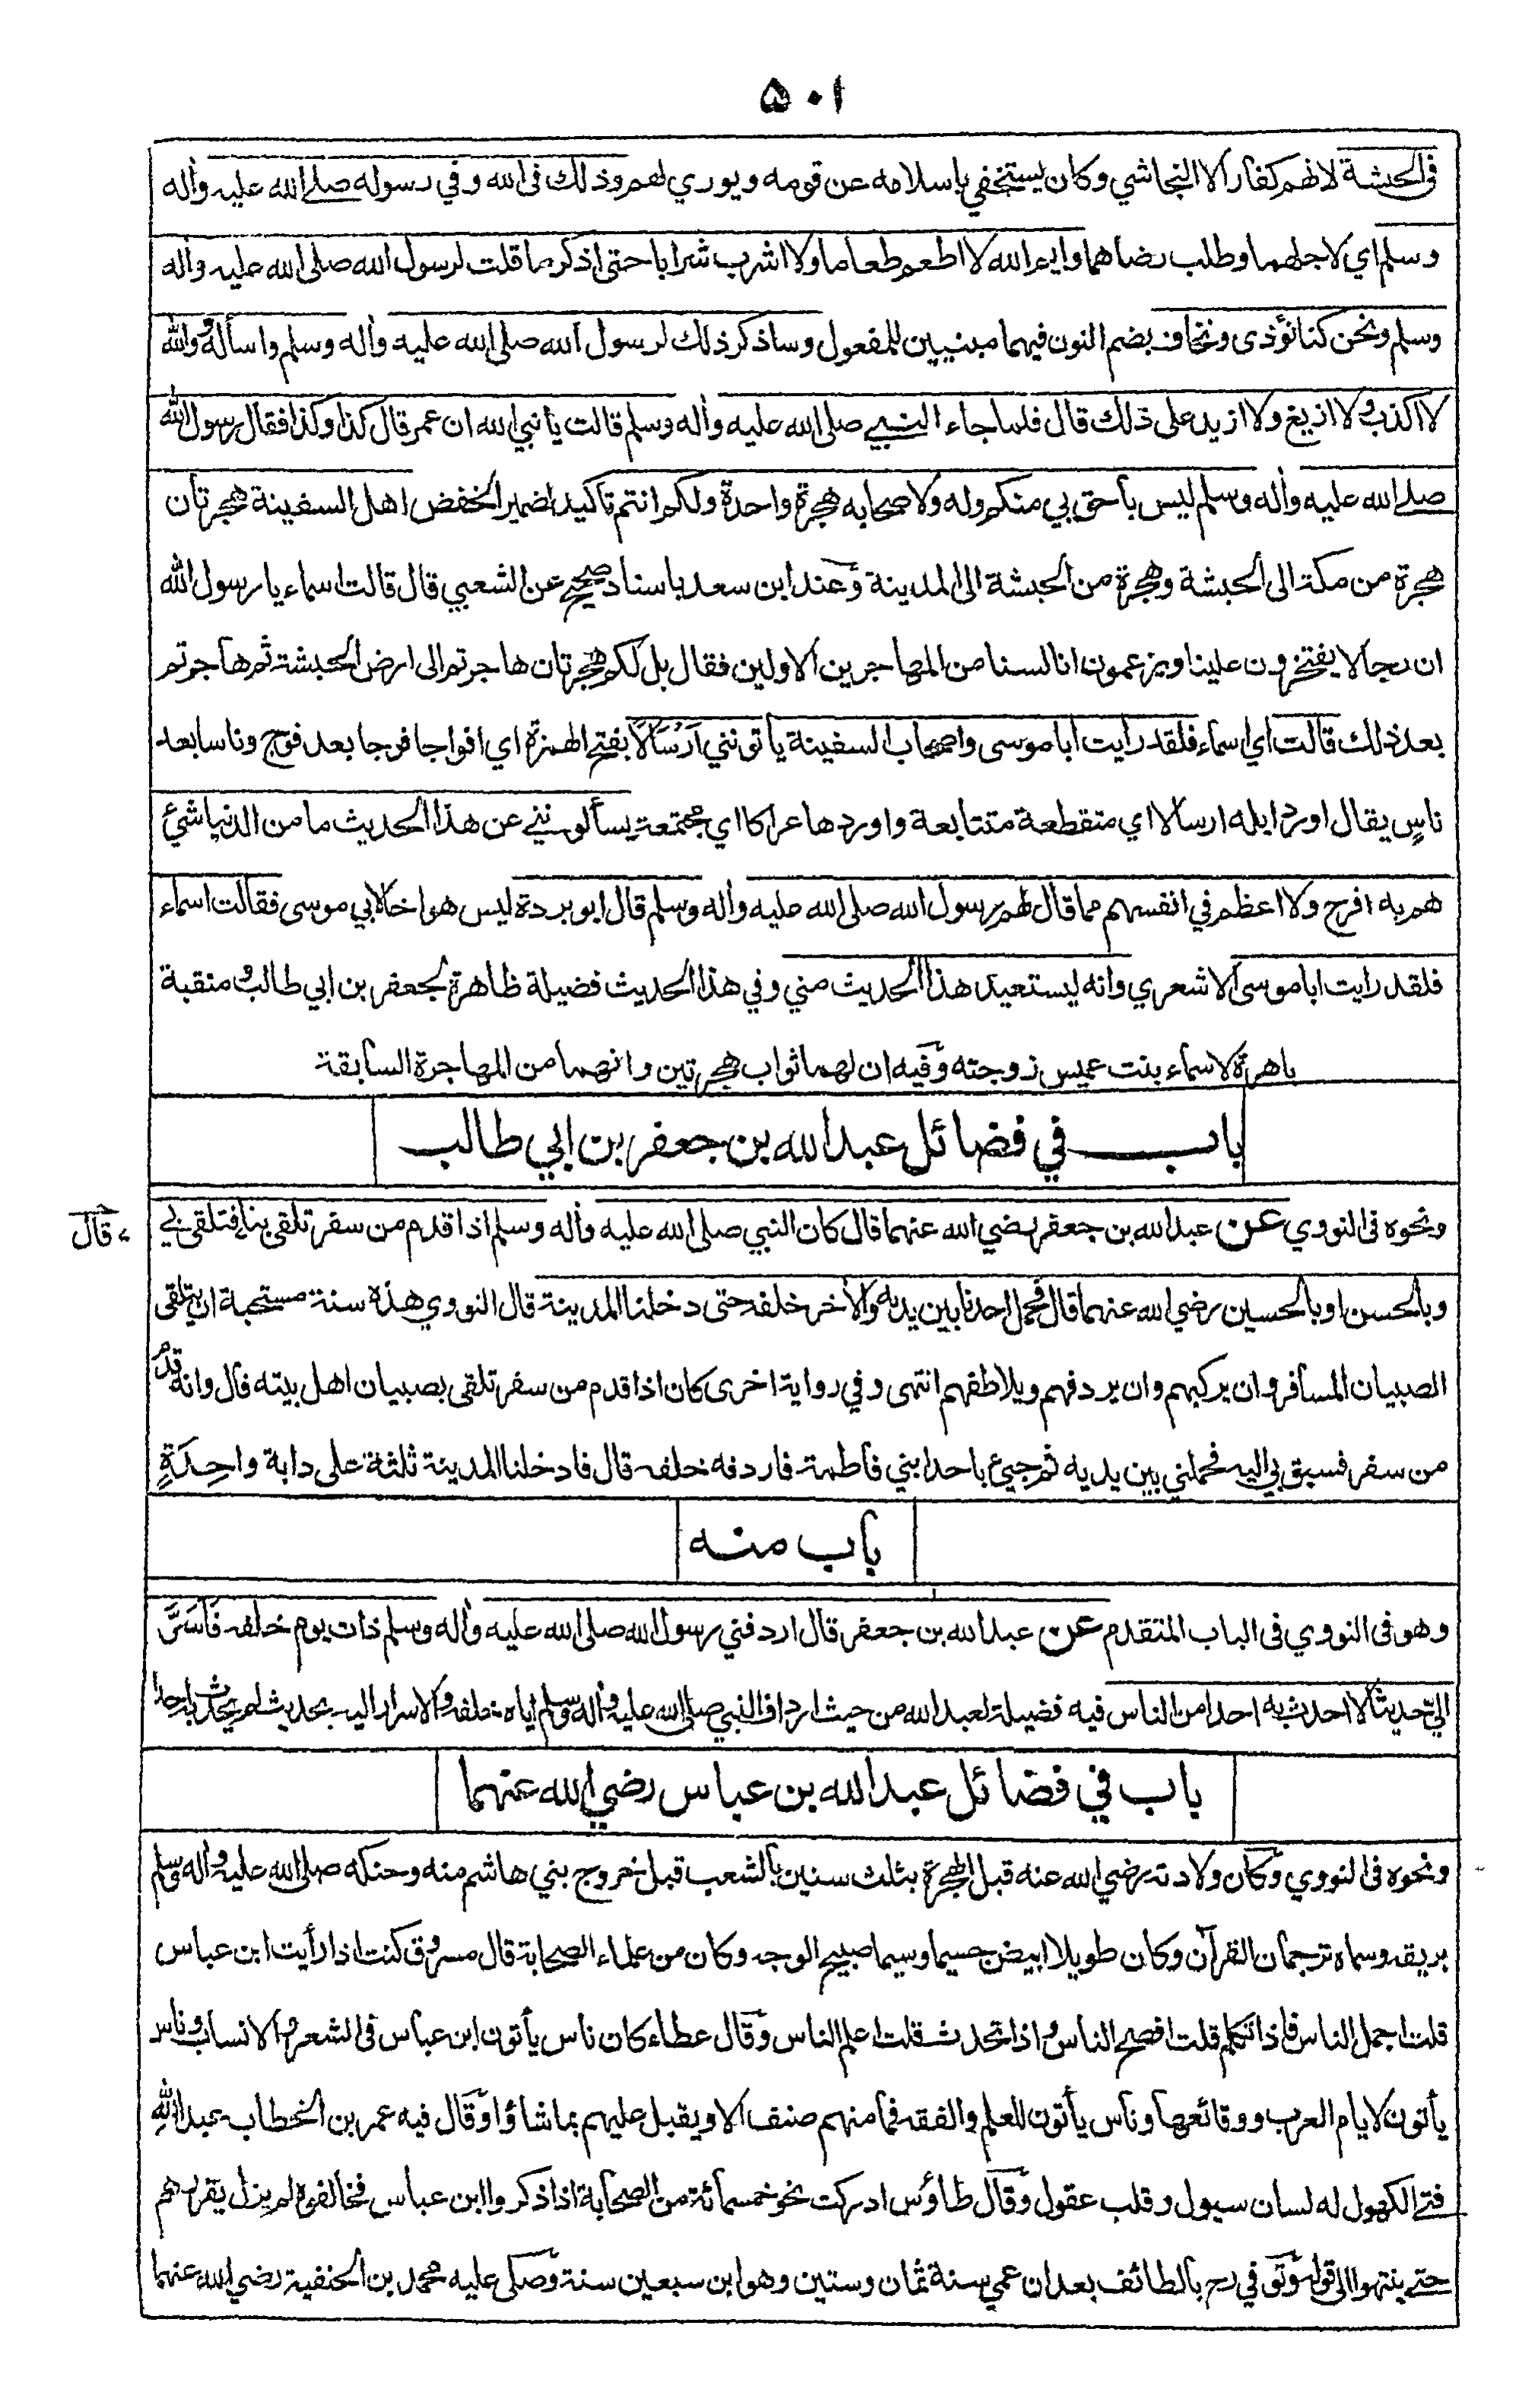 ۵۰۱
فى الحبشة لانهم كفار الا النجاشي وكان يستخفي باسلامه عن قومه ويوري لهم وذلك فى الله وفي رسوله صلى الله عليه واٰله
وسلم اي لاجلهما وطلب رضاهما وايم الله لا اطعم طعاما ولا اشرب شرابا حتى اذكر ما قلت لرسول الله صلى الله عليه واٰله
وسلم ونحن كنا نؤذى ونخاف بضم النون فيهما مبنيين للمفعول وساذكر ذلك لرسول الله صلى الله عليه واٰله وسلم واسأله ووالله
لا اكذب ولا ازيغ ولا ازيد على ذلك قال فلما جاء النبي صلى الله عليه واٰله وسلم قالت يا نبي الله ان عمر قال كذا وكذا فقال رسول الله
صلى الله عليه واٰله وسلم ليس بأحق بي منكم وله ولاصحابه هجرة واحدة ولكم انتم تاكيد لضمير الخفض اهل السفينة هجرتان
هجرة من مكة الى الحبشة وهجرة من الحبشة الى المدينة وعند ابن سعد باسناد صحيح عن الشعبي قال قالت اسماء يا رسول الله
ان رجالا يفتخرون علينا ويزعمون انا لسنا من المهاجرين الاولين فقال بل لكم هجرتان هاجرتم الى ارض الحبشة ثم هاجرتم
بعد ذلك قالت اي اسماء فلقد رايت ابا موسى واصحاب السفينة يأتونني اَرْسَالًا بفتح الهمزة اي افواجا فوجا بعد فوج وناسا بعد
ناسٍ يقال اورد ابله ارسالا اي متقطعة متتابعة واوردها عراكا اي مجتمعة يسألونني عن هذا الحديث ما من الدنيا شئ
هم به افرح ولا اعظم في انفسهم مما قال لهم رسول الله صلى الله عليه واٰله وسلم قال ابو بردة ليس هو اخا لابي موسى فقالت اسماء
فلقد رايت ابا موسى الاشعري وانه ليستعيد هذا الحديث مني وفي هذا الحديث فضيلة ظاهرة لجعفر بن ابي طالب ومنقبة
باهرة لاسماء بنت عميس زوجته وفيه ان لهما ثواب هجرتين وانهما من المهاجرة السابقة
باب في فضائل عبد الله بن جعفر بن ابي طالب
ونحوه فى النووي عن عبد الله بن جعفر رضي الله عنهما قال كان النبي صلى الله عليه واٰله وسلم اذا قدم من سفر تلقى بنا فتلقى بي
قال
وبالحسن او بالحسين رضي الله عنهما قال فحمل احدنا بين يديه والاٰخر خلفه حتى دخلنا المدينة قال النووي هذه سنة مستحبة ان يتلقى
الصبيان المسافر وان يركبهم وان يردفهم ويلاطفهم انتهى وفي رواية اخرى كان اذا قدم من سفر تلقى بصبيان اهل بيته قال وانه قدم
من سفر فسبق بي اليه فحملني بين يديه ثم جيئ باحد ابني فاطمة فاردفه خلفه قال فادخلنا المدينة ثلثة على دابة واحِدَةٍ
باب منه
وهو فى النووي فى الباب المتقدم عن عبد الله بن جعفر قال اردفني رسول الله صلى الله عليه واٰله وسلم ذات يوم خلفه فَاَسَرَّ
اليّ حديثا لا احدث به احدا من الناس فيه فضيلة لعبد الله من حيث ارداف النبي صلى الله عليه واٰله وسلم اياه خلفه والاسرار اليه بحديث لم يحدث به احدا
باب في فضائل عبد الله بن عباس رضي الله عنهما
ونحوه فى النووي وكان ولادته رضي الله عنه قبل الهجرة بثلث سنين بالشعب قبل خروج بني هاشم منه وحنكه صلى الله عليه واٰله وسلم
بريقه وسماه ترجمان القرآن وكان طويلا ابيض جسيما وسيما صبيح الوجه وكان من علماء الصحابة قال مسروق كنت اذا رأيت ابن عباس
قلت اجمل الناس فاذا تكلم قلت افصح الناس واذا تحدث قلت اعلم الناس وقال عطاء كان ناس يأتون ابن عباس فى الشعر والانساب وناس
يأتون لايام العرب ووقائعها وناس يأتون للعلم والفقه فما منهم صنف الا ويقبل عليهم بما شاؤا وقال فيه عمر بن الخطاب عبد الله
فتى الكهول له لسان سيول وقلب عقول وقال طاؤس ادركت نحو خمسمائة من الصحابة اذا ذكروا ابن عباس فخالفوه لم يزل يقررهم
حتى ينتهوا الى قوله وتوفي رح بالطائف بعد ان عمي سنة ثمان وستين وهو ابن سبعين سنة وصلى عليه محمد بن الحنفية رضي الله عنهما